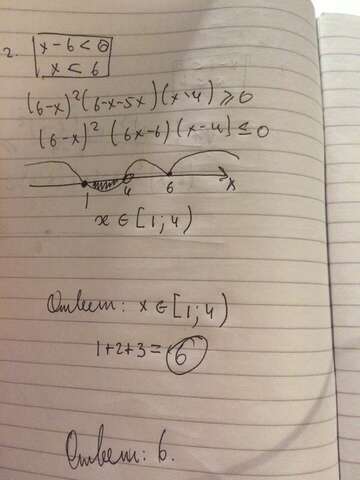 2. x - 6 < 0
x < 6
(6-x)²(6-x-5x)(x-4) ≥ 0
(6-x)² (6x-6)(x-4) ≤ 0
1 4 6 x
x ∈ [1; 4)
Ответ: x ∈ [1; 4)
1+2+3 = 6
Ответ: 6.